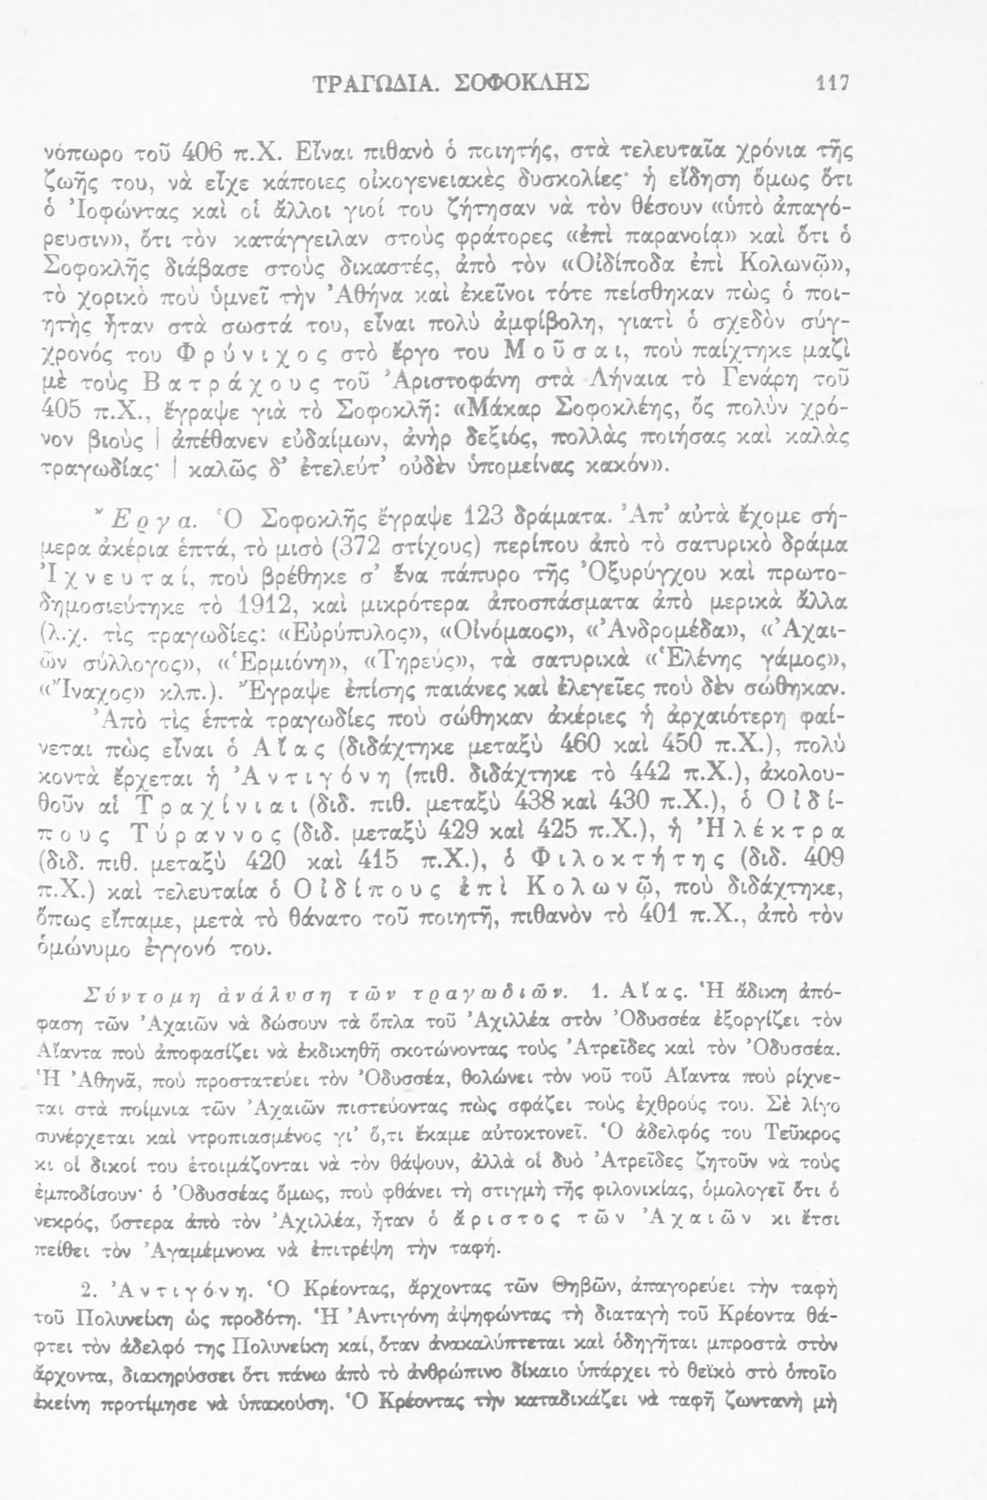 ΤΡΑΓΩΔΙΑ. ΣΟΦΟΚΛΗΣ 117
νόπωρο τοῦ 406 π.Χ. Εἶναι πιθανὸ ὁ ποιητής, στὰ τελευταῖα χρόνια τῆς
ζωῆς του, νὰ εἶχε κάποιες οἰκογενειακὲς δυσκολίες· ἡ εἴδηση ὅμως ὅτι
ὁ Ἰοφώντας καὶ οἱ ἄλλοι γιοί του ζήτησαν νὰ τὸν θέσουν «ὑπὸ ἀπαγό-
ρευσιν», ὅτι τὸν κατάγγειλαν στοὺς φράτορες «ἐπὶ παρανοίᾳ» καὶ ὅτι ὁ
Σοφοκλῆς διάβασε στοὺς δικαστές, ἀπὸ τὸν «Οἰδίποδα ἐπὶ Κολωνῷ»,
τὸ χορικὸ ποὺ ὑμνεῖ τὴν Ἀθήνα καὶ ἐκεῖνοι τότε πείσθηκαν πὼς ὁ ποι-
ητὴς ἦταν στὰ σωστά του, εἶναι πολὺ ἀμφίβολη, γιατὶ ὁ σχεδὸν σύγ-
χρονός του Φρύνιχος στὸ ἔργο του Μοῦσαι, ποὺ παίχτηκε μαζὶ
μὲ τοὺς Βατράχους τοῦ Ἀριστοφάνη στὰ Λήναια τὸ Γενάρη τοῦ
405 π.Χ., ἔγραψε γιὰ τὸ Σοφοκλῆ: «Μάκαρ Σοφοκλέης, ὃς πολὺν χρό-
νον βιοὺς | ἀπέθανεν εὐδαίμων, ἀνὴρ δεξιός, πολλὰς ποιήσας καὶ καλὰς
τραγωδίας· | καλῶς δ’ ἐτελεύτ’ οὐδὲν ὑπομείνας κακόν».
Ἔργα. Ὁ Σοφοκλῆς ἔγραψε 123 δράματα. Ἀπ’ αὐτὰ ἔχομε σή-
μερα ἀκέρια ἑπτά, τὸ μισὸ (372 στίχους) περίπου ἀπὸ τὸ σατυρικὸ δράμα
Ἰχνευταί, ποὺ βρέθηκε σ’ ἕνα πάπυρο τῆς Ὀξυρύγχου καὶ πρωτο-
δημοσιεύτηκε τὸ 1912, καὶ μικρότερα ἀποσπάσματα ἀπὸ μερικὰ ἄλλα
(λ.χ. τὶς τραγωδίες: «Εὐρύπυλος», «Οἰνόμαος», «Ἀνδρομέδα», «Ἀχαι-
ῶν σύλλογος», «Ἑρμιόνη», «Τηρεύς», τὰ σατυρικὰ «Ἑλένης γάμος»,
«Ἴναχος» κλπ.). Ἔγραψε ἐπίσης παιάνες καὶ ἐλεγεῖες ποὺ δὲν σώθηκαν.
Ἀπὸ τὶς ἑπτὰ τραγωδίες ποὺ σώθηκαν ἀκέριες ἡ ἀρχαιότερη φαί-
νεται πὼς εἶναι ὁ Αἴας (διδάχτηκε μεταξὺ 460 καὶ 450 π.Χ.), πολὺ
κοντὰ ἔρχεται ἡ Ἀντιγόνη (πιθ. διδάχτηκε τὸ 442 π.Χ.), ἀκολου-
θοῦν αἱ Τραχίνιαι (διδ. πιθ. μεταξὺ 438 καὶ 430 π.Χ.), ὁ Οἰδί-
πους Τύραννος (διδ. μεταξὺ 429 καὶ 425 π.Χ.), ἡ Ἠλέκτρα
(διδ. πιθ. μεταξὺ 420 καὶ 415 π.Χ.), ὁ Φιλοκτήτης (διδ. 409
π.Χ.) καὶ τελευταία ὁ Οἰδίπους ἐπὶ Κολωνῷ, ποὺ διδάχτηκε,
ὅπως εἴπαμε, μετὰ τὸ θάνατο τοῦ ποιητῆ, πιθανὸν τὸ 401 π.Χ., ἀπὸ τὸν
ὁμώνυμο ἐγγονό του.
Σύντομη ἀνάλυση τῶν τραγωδιῶν. 1. Αἴας. Ἡ ἄδικη ἀπό-
φαση τῶν Ἀχαιῶν νὰ δώσουν τὰ ὅπλα τοῦ Ἀχιλλέα στὸν Ὀδυσσέα ἐξοργίζει τὸν
Αἴαντα ποὺ ἀποφασίζει νὰ ἐκδικηθῆ σκοτώνοντας τοὺς Ἀτρεῖδες καὶ τὸν Ὀδυσσέα.
Ἡ Ἀθηνᾶ, ποὺ προστατεύει τὸν Ὀδυσσέα, θολώνει τὸν νοῦ τοῦ Αἴαντα ποὺ ρίχνε-
ται στὰ ποίμνια τῶν Ἀχαιῶν πιστεύοντας πὼς σφάζει τοὺς ἐχθρούς του. Σὲ λίγο
συνέρχεται καὶ ντροπιασμένος γι’ ὅ,τι ἔκαμε αὐτοκτονεῖ. Ὁ ἀδελφός του Τεῦκρος
κι οἱ δικοί του ἑτοιμάζονται νὰ τὸν θάψουν, ἀλλὰ οἱ δυὸ Ἀτρεῖδες ζητοῦν νὰ τοὺς
ἐμποδίσουν· ὁ Ὀδυσσέας ὅμως, ποὺ φθάνει τὴ στιγμὴ τῆς φιλονικίας, ὁμολογεῖ ὅτι ὁ
νεκρός, ὕστερα ἀπὸ τὸν Ἀχιλλέα, ἦταν ὁ ἄριστος τῶν Ἀχαιῶν κι ἔτσι
πείθει τὸν Ἀγαμέμνονα νὰ ἐπιτρέψη τὴν ταφή.
2. Ἀντιγόνη. Ὁ Κρέοντας, ἄρχοντας τῶν Θηβῶν, ἀπαγορεύει τὴν ταφὴ
τοῦ Πολυνείκη ὡς προδότη. Ἡ Ἀντιγόνη ἀψηφώντας τὴ διαταγὴ τοῦ Κρέοντα θά-
φτει τὸν ἀδελφό της Πολυνείκη καί, ὅταν ἀνακαλύπτεται καὶ ὁδηγῆται μπροστὰ στὸν
ἄρχοντα, διακηρύσσει ὅτι πάνω ἀπὸ τὸ ἀνθρώπινο δίκαιο ὑπάρχει τὸ θεϊκὸ στὸ ὁποῖο
ἐκείνη προτίμησε νὰ ὑπακούση. Ὁ Κρέοντας τὴν καταδικάζει νὰ ταφῆ ζωντανὴ μὴ